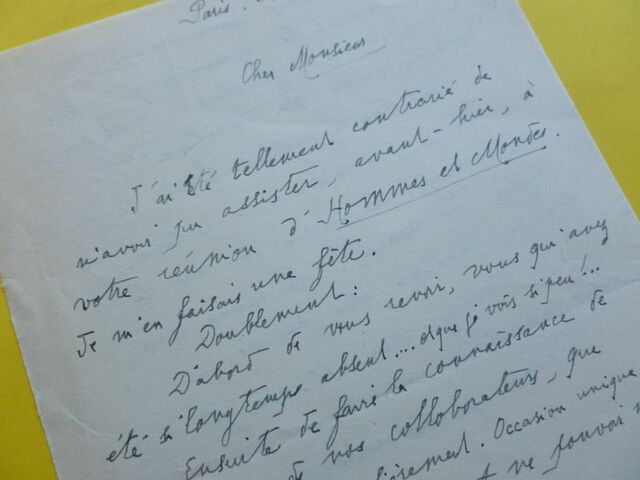 Paris.
Cher Monsieur
J'ai été tellement contrarié de
n'avoir pu assister, avant-hier, à
votre réunion d'Hommes et Mondes.
Je m'en faisais une fête.
Doublement :
D'abord de vous revoir, vous qui avez
été si longtemps absent.... et que je vois si peu !...
Ensuite de faire la connaissance de
de nos collaborateurs, que
Occasion unique
ne pouvoir